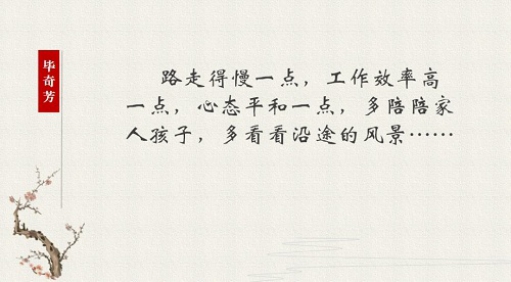 毕奇芳
路走得慢一点，工作效率高
一点，心态平和一点，多陪陪家
人孩子，多看看沿途的风景……